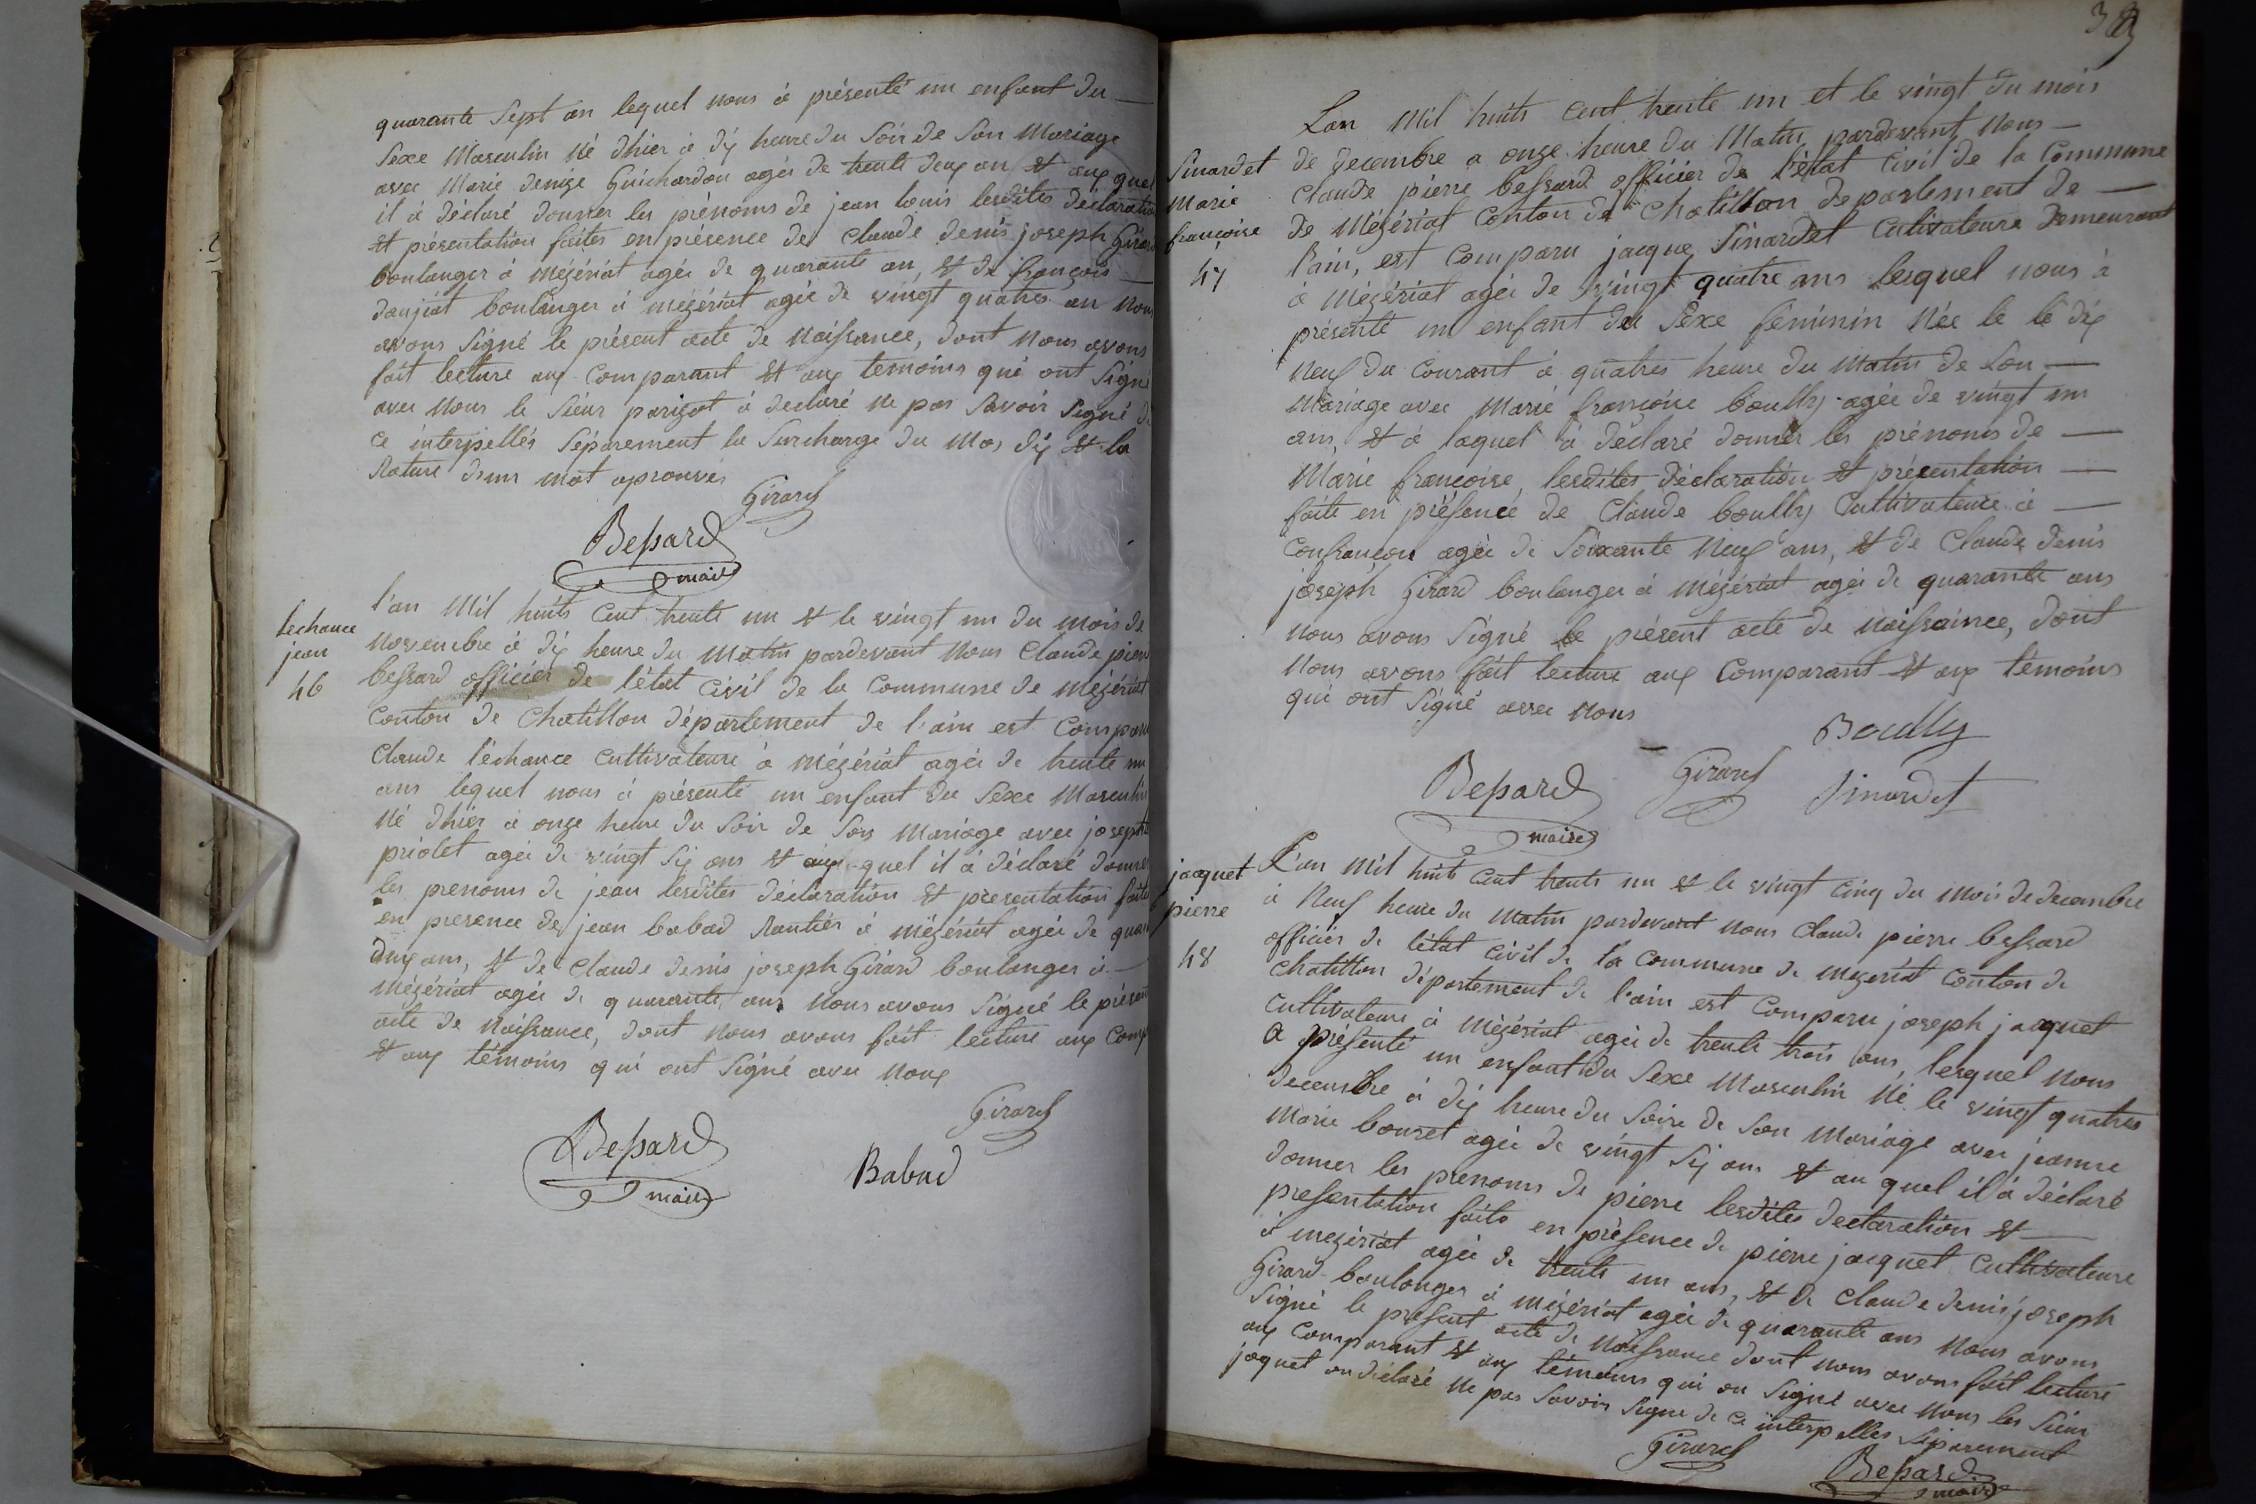 quarante Sept an lequel nous à présenté un enfant du —
Sexe Masculin Né dhier à dix heure du Soir de Son Mariage
avec Marie denize Guichardon agée de trente deux an et aux quel
il à déclaré donner les prénoms de jean louis lesdites déclaration
et présentation faites en présence de claude denis joseph Girard
boulanger à mézériat agée de quarante an, et de françois —
danjéat boulanger à mézériat agée de vingt quatres an nous
avons Signé le présent acte de Naissance, dont Nous avons
fait lecture aux Comparant et aux temoins qui ont Signé
avec Nous le Sieur parizot à declaré ne pas Savoir Signé de
Ce interpellés Séparement la Surcharge du Mos dix et la
Rature d'un mot aprouver
Girard
Bessard
maire
Lechance
jean
46
l'an Mil huits Cent trente un et le vingt un du mois de
Novembre à dix heure du Matin pardevant Nous Claude pierre
bessard officier de l'état Civil de la Commune de mézériat
Conton de Chatillon département de l'ain est Comparu
Claude léchance Cultivateure à mézériat agée de trente un
ans lequel nous à présenté un enfant du Sexe Masculin
Né dhier à onze heure du Soir de Son Mariage avec josephte
priolet agée de vingt Six ans et aux quel il à déclaré donner
les prenoms de jean lesdites déclaration et presentation faites
en presence de jean babad Rantiér à mézériat agée de
deux ans, et de Claude denis joseph Girard boulanger à —
Mézériat agée de quarante ans Nous avons Signé le présent
acte de Naissance, dont Nous avons fait lecture aux Comp
et aux témoins qui ont Signé avec Noux
Girard
Bessard
maire
Babad
Lan Mil huits Cent trente un et le vingt du mois
Sinardet
Marie
françoise
47
de Decembre a onze heure du Matin, pardevant Nous —
Claude pierre bessard officier de l'état Civil de la Commune
de Mézériat Conton de Chatillon département de —
l'ain, est Comparu jacque Sinardet Cultivateure Demeurant
à Mézériat agée de vingt quatre ans lesquel nous à
présenté un enfant du Sexe féminin Née le le dix
Neuf du Courant à quatres heure du Matin de Son —
Mariage avec Marie françoise boully agée de vingt un
ans, et à laquel à déclaré donner les prénoms de —
Marie françoise, lesdites déclaration et présentation —
faite en présence de Claude boully Cultivateure à —
Confrançon agée de Soixante Neuf ans, et de Claude denis
joseph Girard boulanger à Mézériat agée de quarante ans
Nous avons Signé le présent acte de Naissaince, dont
Nous avons fait lecture aux Comparant et aux témoins
qui ont Signé avec Nous
Boully
Bessard
maire
Girard
Sinardet
jacquet
pierre
48
L'an Mil huit Cent trente un et le vingt Cinq du Mois de decembre
à Neuf heure du Matin pardevant Nous Claude pierre bessard
officiér de l'état Civil de la Commune de Mezeriat Conton de
Chatillon département de l'ain est Comparu joseph jacquet
Cultivateure à Mézériat agée de trente trois ans, lesquel Nous
à présenté un enfant du Sexe Masculin Né le vingt quatres
decembre à dix heure du Soire de Son Mariage avec jeanne
Marie bouret agée de vingt Six ans et au quel il à déclaré
donner les prenoms de pierre lesdites declaration et —
presentation faite en présence de pierre jacquet Cultivateure
à mezeriat agée de trente un ans, et de Claude denis joseph
Girard boulanger à Mézériat agée de quarante ans Nous avons
Signé le présent acte de Naissance dont nous avons fait lecture
aux Comparant et aux témoins qui on Signé avec Nous les Sieur
jaquet on déclaré Ne pas Savoir Signe de Ce interpelles Séparement
Girard
Bessard
maire